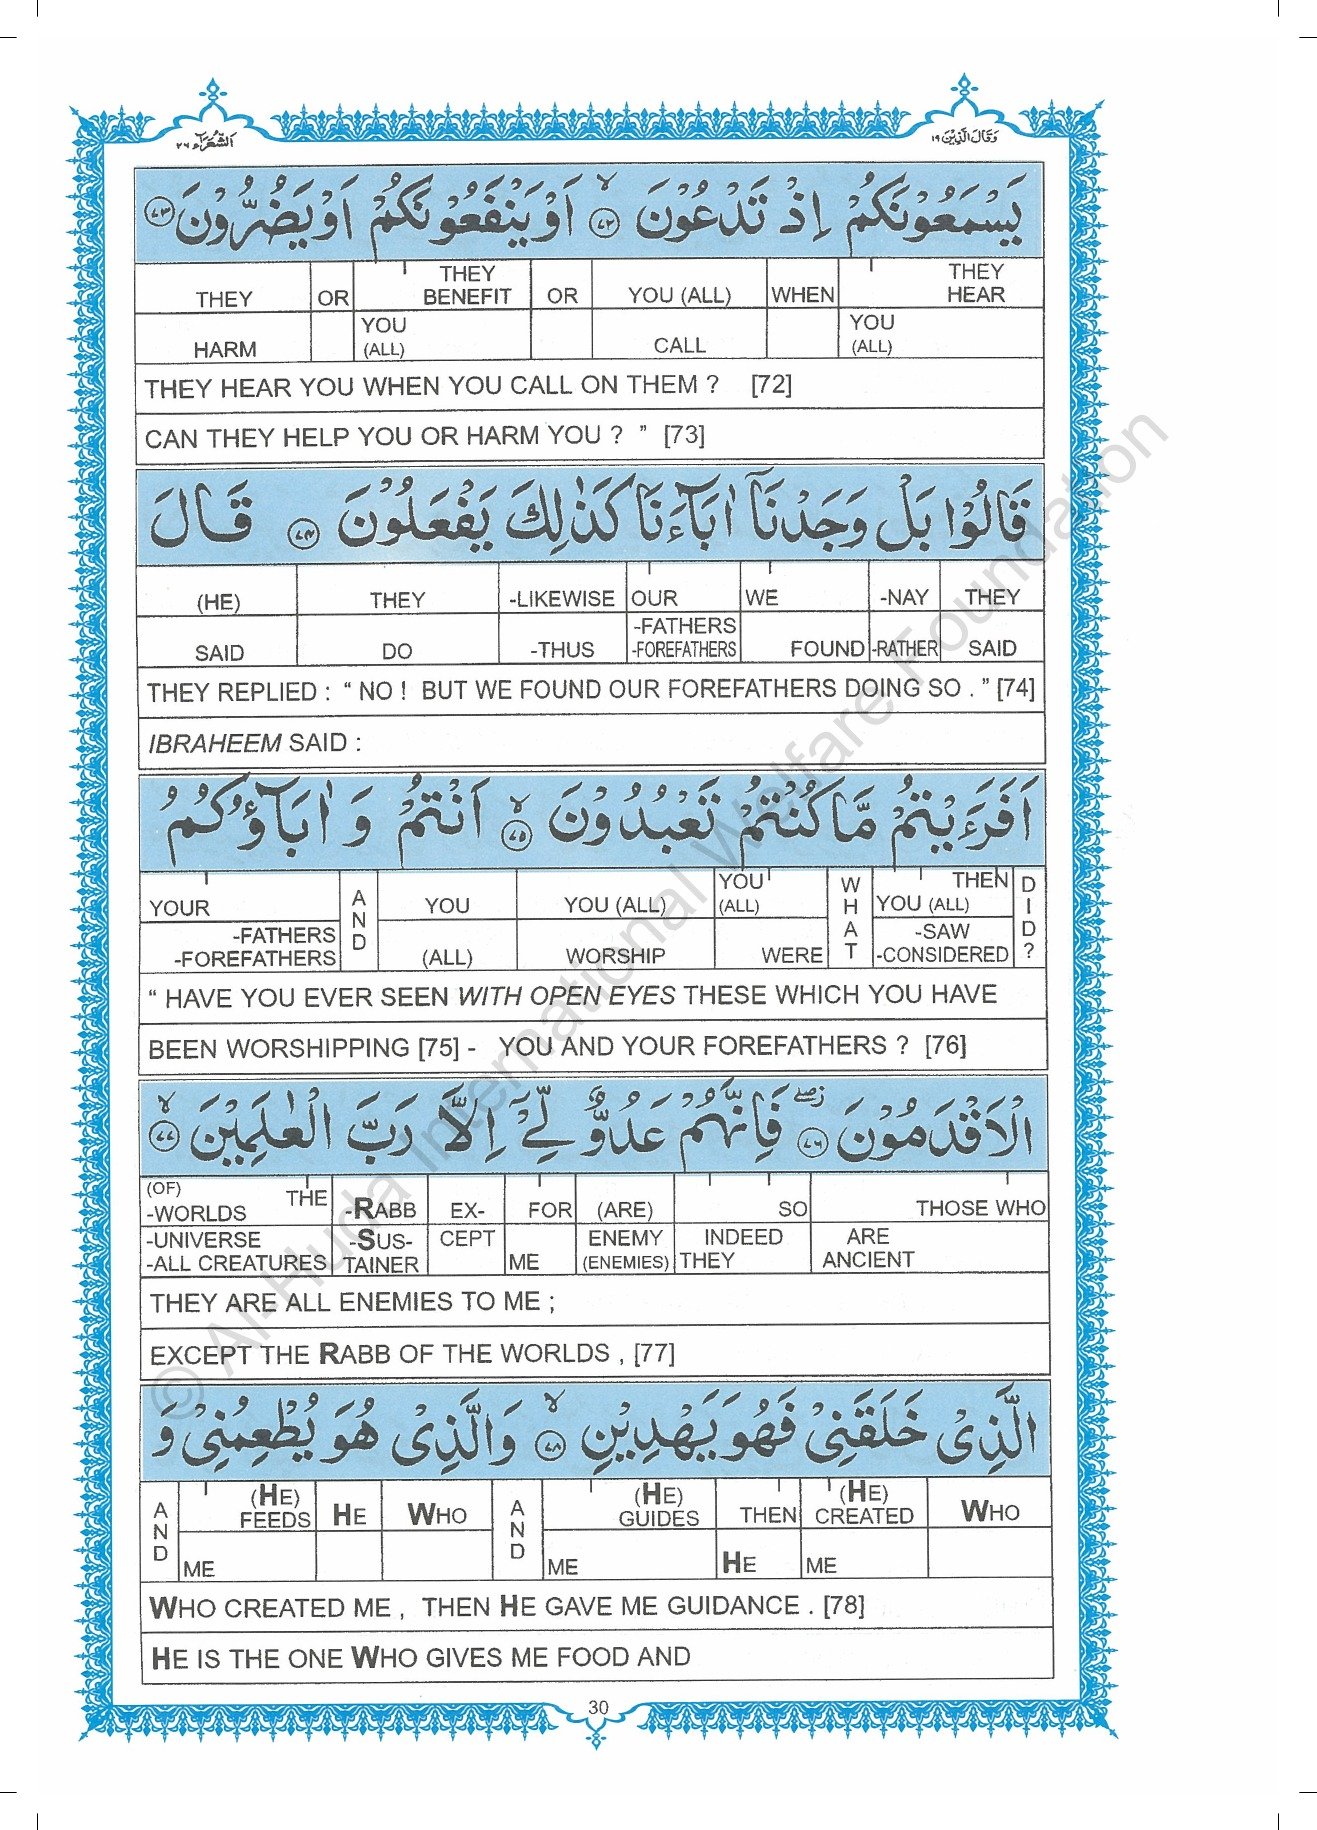 الشعراء ٢٦
وقال الذين ١٩
يَسْمَعُوْنَكُمْ اِذْ تَدْعُوْنَ ﴿٧٢﴾ۙ اَوْ يَنْفَعُوْنَكُمْ اَوْ يَضُرُّوْنَ ﴿٧٣﴾
THEY OR THEY BENEFIT OR YOU (ALL) WHEN THEY HEAR
HARM YOU (ALL) CALL YOU (ALL)
THEY HEAR YOU WHEN YOU CALL ON THEM ? [72]
CAN THEY HELP YOU OR HARM YOU ? ” [73]
قَالُوْا بَلْ وَجَدْنَاۤ اٰبَآءَنَا كَذٰلِكَ يَفْعَلُوْنَ ﴿٧٤﴾ قَالَ
(HE) THEY -LIKEWISE OUR WE -NAY THEY
SAID DO -THUS -FATHERS -FOREFATHERS FOUND -RATHER SAID
THEY REPLIED : “ NO ! BUT WE FOUND OUR FOREFATHERS DOING SO . ” [74]
IBRAHEEM SAID :
اَفَرَءَيْتُمْ مَّا كُنْتُمْ تَعْبُدُوْنَ ﴿٧٥﴾ۙ اَنْتُمْ وَاٰبَآؤُكُمُ
YOUR AND YOU YOU (ALL) YOU (ALL) WHAT THEN YOU (ALL) DID?
-FATHERS -FOREFATHERS (ALL) WORSHIP WERE -SAW -CONSIDERED
“ HAVE YOU EVER SEEN WITH OPEN EYES THESE WHICH YOU HAVE
BEEN WORSHIPPING [75] - YOU AND YOUR FOREFATHERS ? [76]
الْاَقْدَمُوْنَ ﴿٧٦﴾ۖ فَاِنَّهُمْ عَدُوٌّ لِّيْۤ اِلَّا رَبَّ الْعٰلَمِيْنَ ﴿٧٧﴾ۙ
(OF) -WORLDS THE -RABB EX- FOR (ARE) SO THOSE WHO
-UNIVERSE -ALL CREATURES -SUS- TAINER CEPT ME ENEMY (ENEMIES) INDEED THEY ARE ANCIENT
THEY ARE ALL ENEMIES TO ME ;
EXCEPT THE RABB OF THE WORLDS , [77]
الَّذِيْ خَلَقَنِيْ فَهُوَ يَهْدِيْنِ ﴿٧٨﴾ۙ وَالَّذِيْ هُوَ يُطْعِمُنِيْ وَ
AND (HE) FEEDS HE WHO AND (HE) GUIDES THEN (HE) CREATED WHO
ME ME HE ME
WHO CREATED ME , THEN HE GAVE ME GUIDANCE . [78]
HE IS THE ONE WHO GIVES ME FOOD AND
30
© Al-Huda International Welfare Foundation